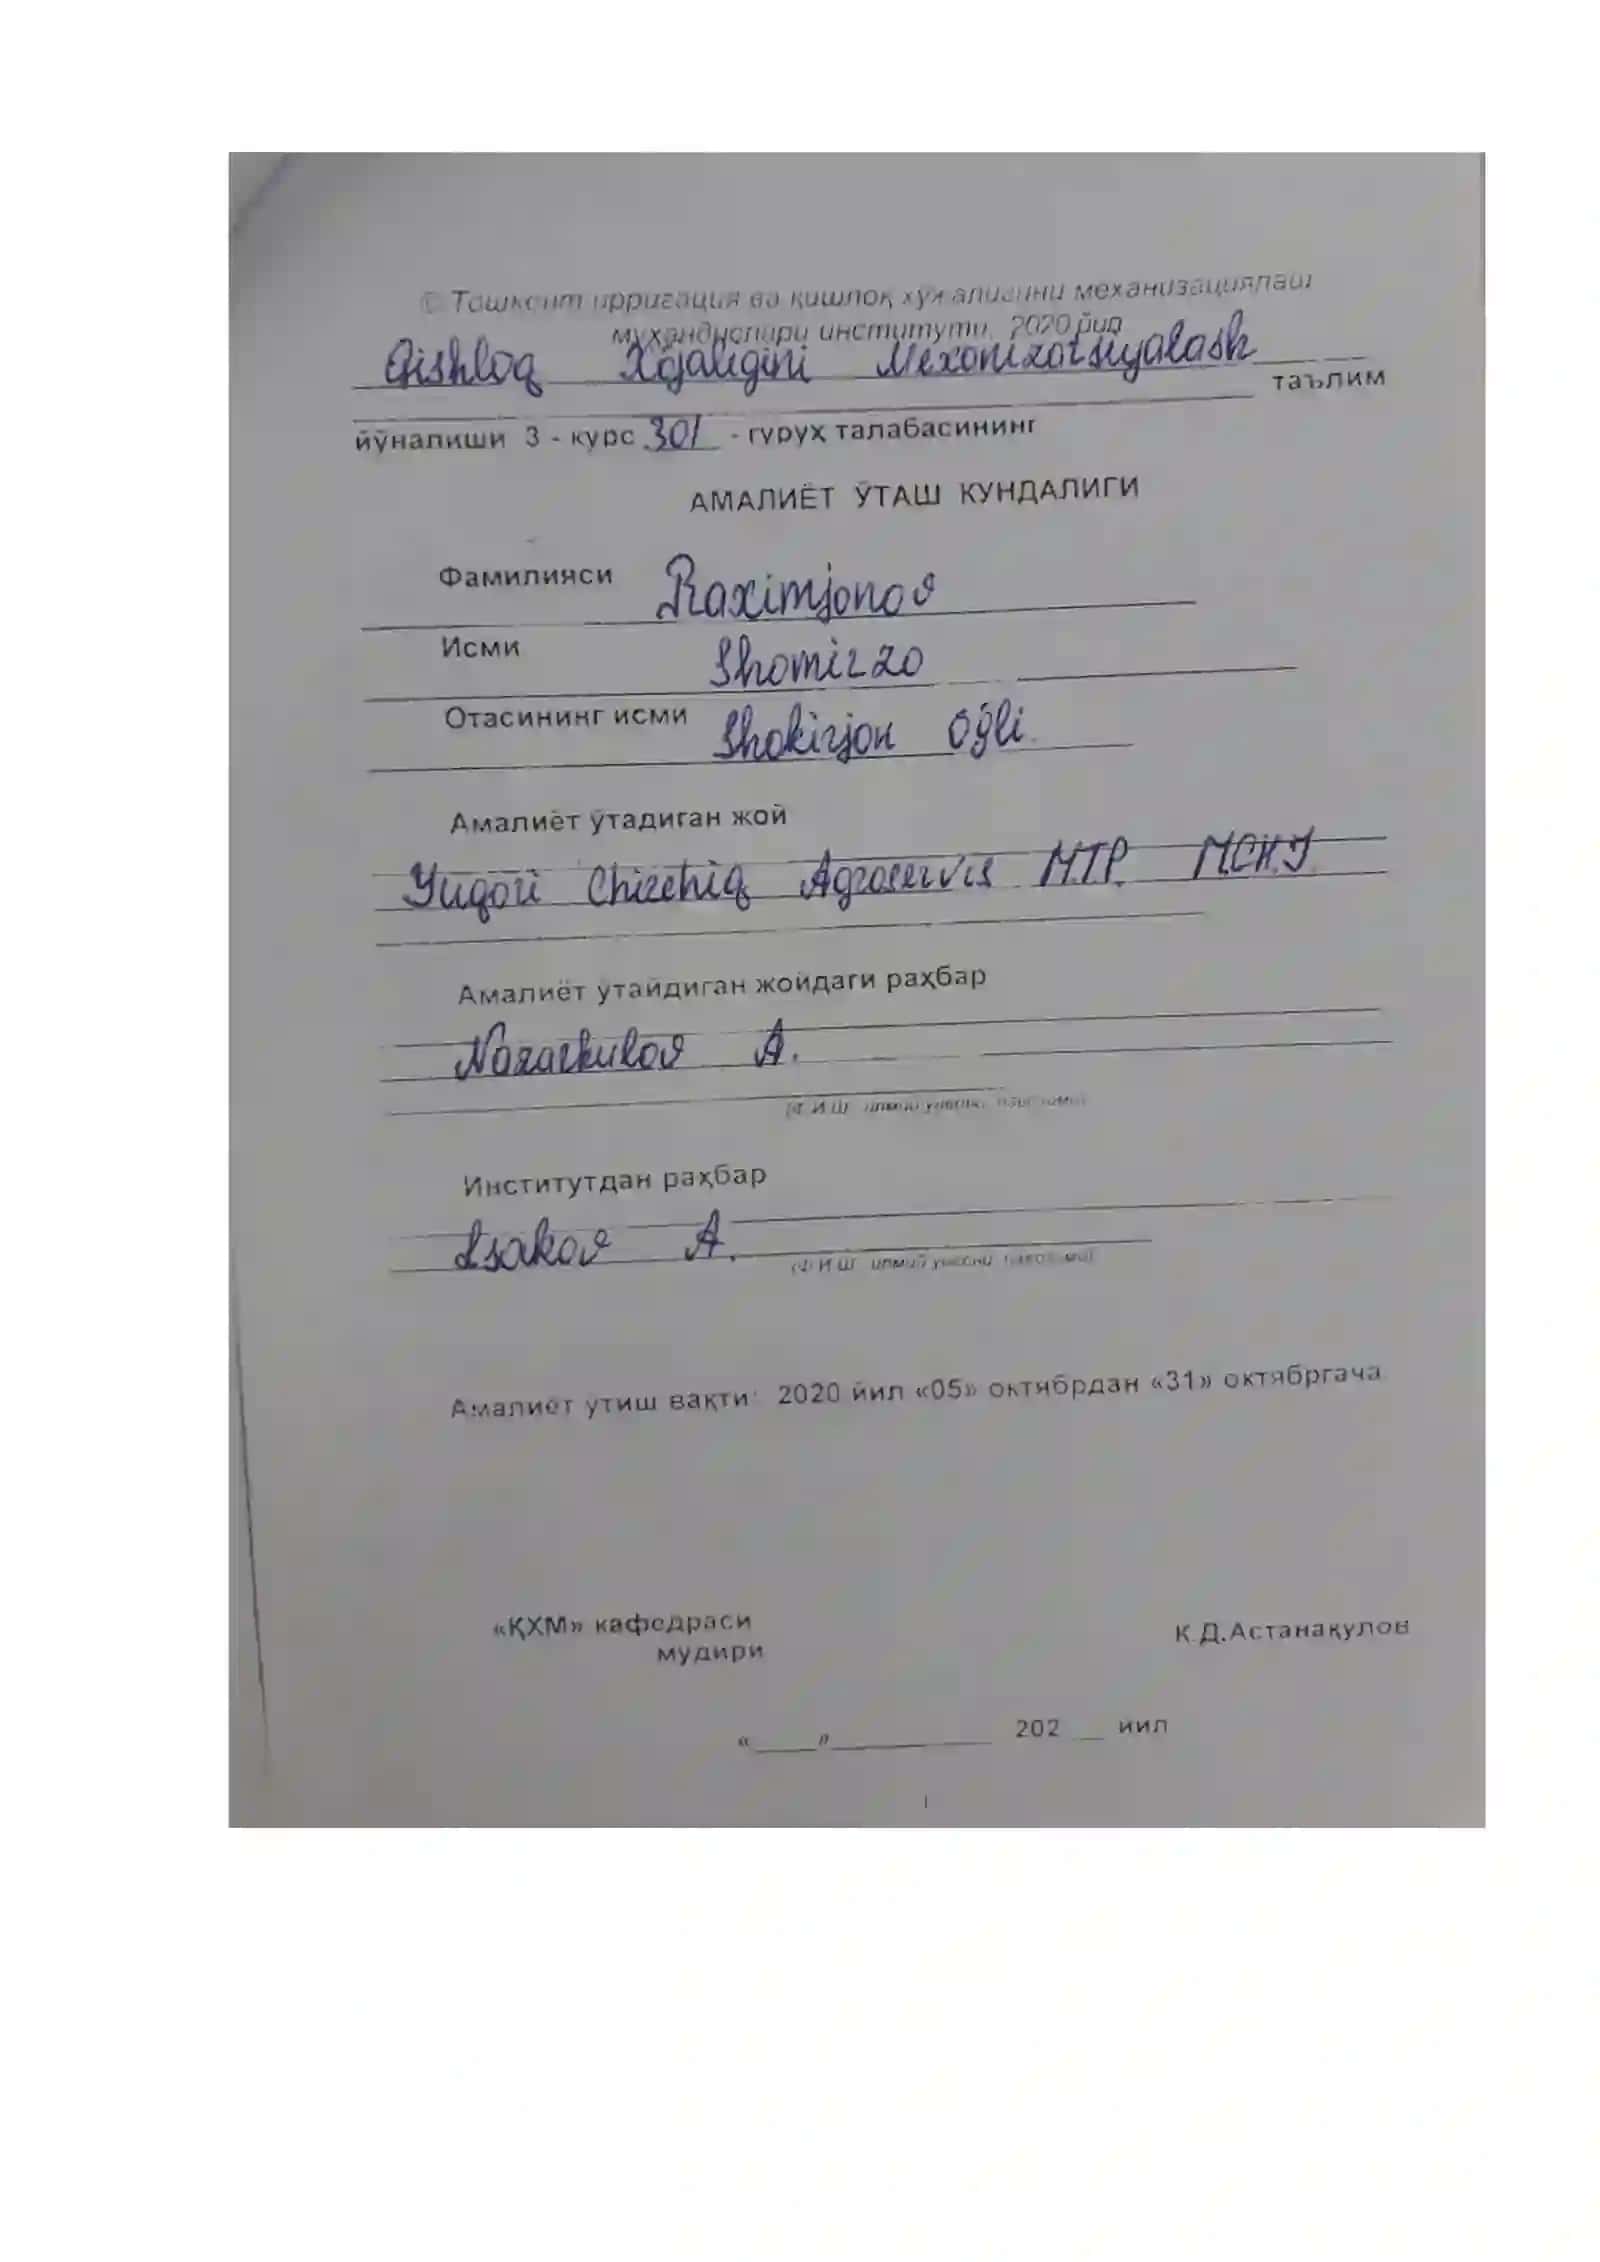 © Тошкент ирригация ва қишлоқ хўжалигини механизациялаш
муҳандислари институти, 2020 йил
Qishloq Xojaligini Mexonizatsiyalash
таълим
йўналиши 3 - курс 301 - гуруҳ талабасининг
АМАЛИЁТ ЎТАШ КУНДАЛИГИ
Фамилияси Raximjonov
Исми Shomirzo
Отасининг исми Shokirjon O'g'li.
Амалиёт ўтадиган жой
Yuqori Chirchiq Agroservis M.T.P.
Амалиёт ўтайдиган жойдаги раҳбар
Nazarkulov A.
(Ф.И.Ш. илмий унвони,
Институтдан раҳбар
Isakov A.
(Ф.И.Ш. илмий унвони,
Амалиёт ўтиш вақти: 2020 йил «05» октябрдан «31» октябргача
«ҚХМ» кафедраси
мудири
К.Д.Астанақулов
«____»__________ 202 __ йил
1